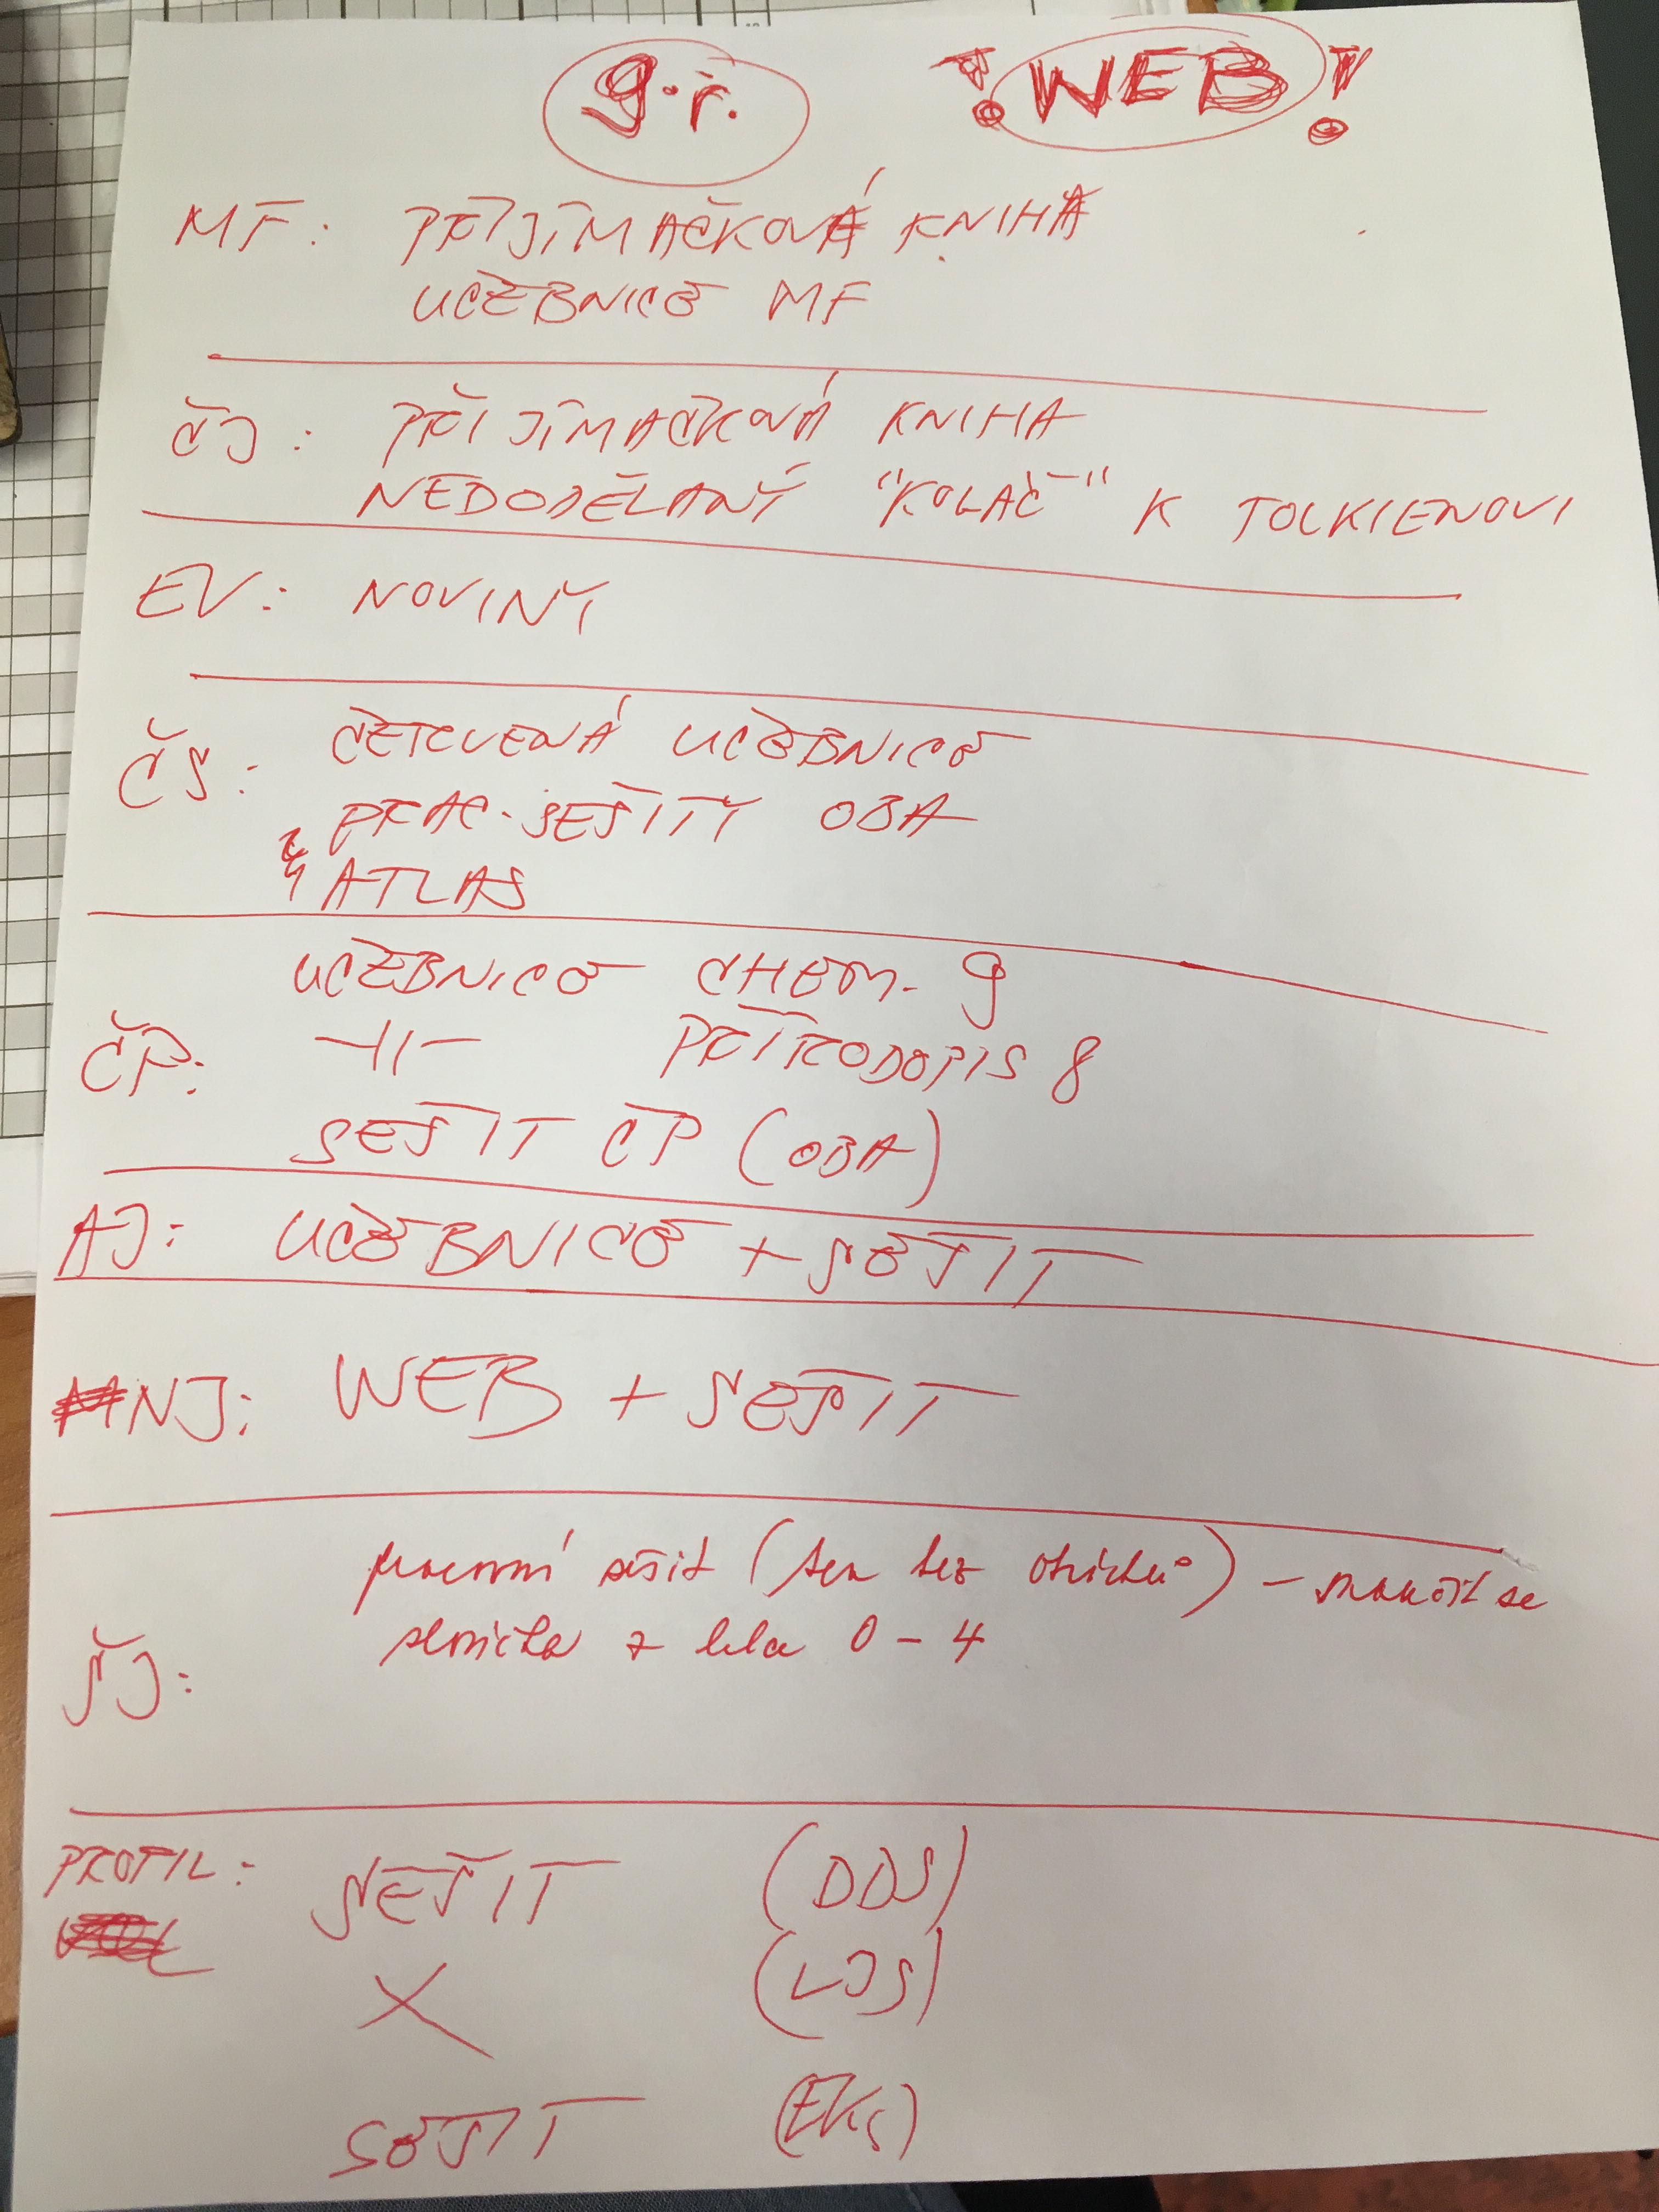 9.ř. ! WEB !
MF: PŘIJÍMAČKOVÁ KNIHA
UČEBNICE MF
ČJ: PŘIJÍMAČKOVÁ KNIHA
NEDODĚLANÝ "KOLÁČ" K TOLKIENOVI
EV: NOVINY
ČS: ČERVENÁ UČEBNICE
PRAC. SEŠITY OBA
ATLAS
UČEBNICE CHEM. 9
ČP: -||- PŘÍRODOPIS 8
SEŠIT ČP (OBA)
AJ: UČEBNICE + SEŠIT
NJ: WEB + SEŠIT
pracovní sešit (ten bez obrázků) - se
slovíčka z lekce 0-4
ŠJ:
PROFIL: SEŠIT (DDS)
X (LJS)
SEŠIT (EKS)